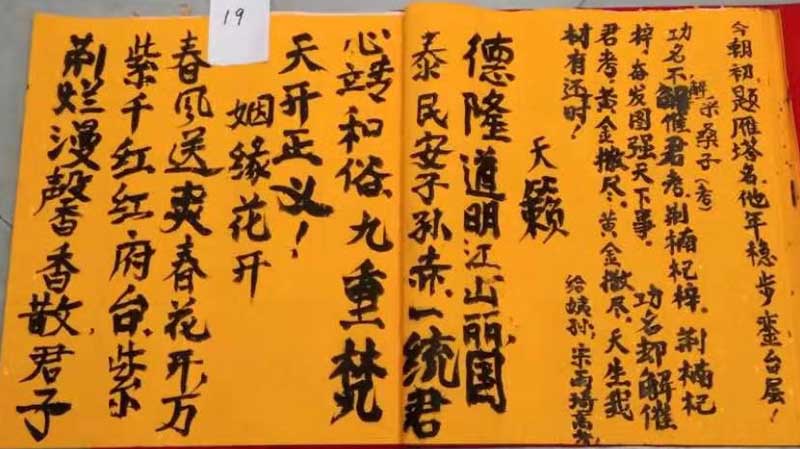 19
今朝初题雁塔名,他年稳步銮台层!
采桑子(考)
解
功名不解催君考,荆楠杞梓。荆楠杞
梓,奋发图强天下事。功名却解催
君考,黄金撒尽。黄金撒尽,天生我
材有还时!
给姨孙:宋雨琦高考
天籁
德隆道明江山丽,国
泰民安子孙赤,一统君
心靖和俗,九重梵
天开正义!
姻缘花开
春风送爽春花开,万
紫千红红府台,紫
荆烂漫馨香散,君子